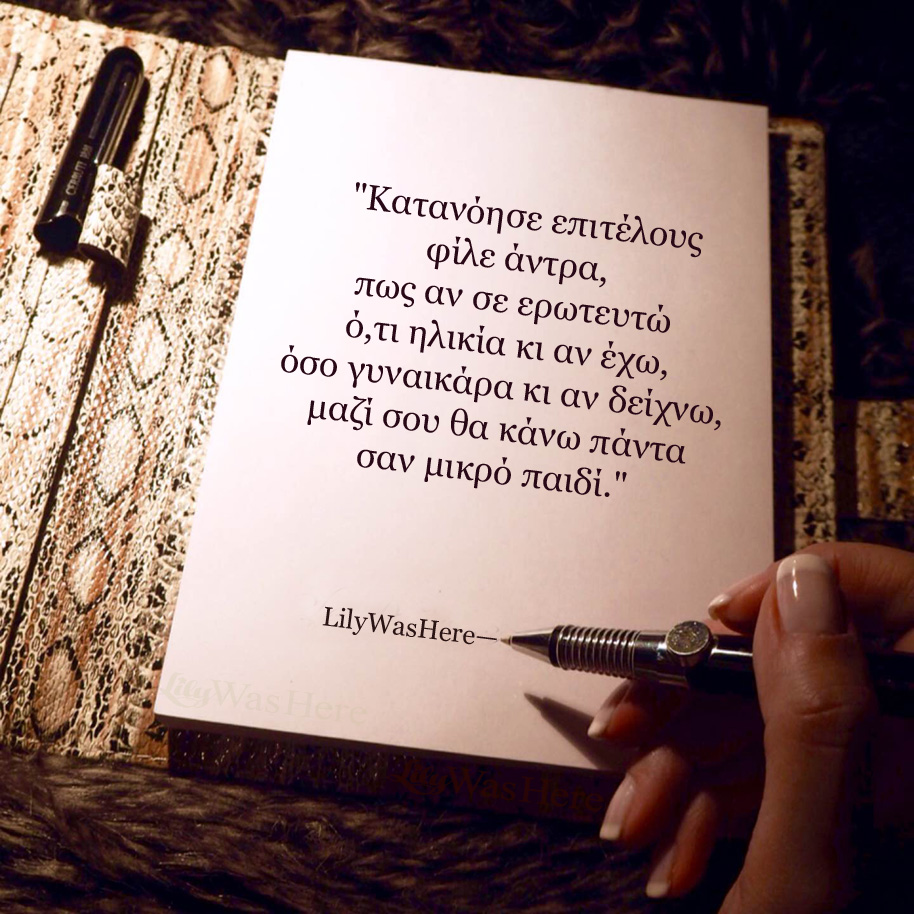 "Κατανόησε επιτέλους
φίλε άντρα,
πως αν σε ερωτευτώ
ό,τι ηλικία κι αν έχω,
όσο γυναικάρα κι αν δείχνω,
μαζί σου θα κάνω πάντα
σαν μικρό παιδί."
LilyWasHere—
LilyWasHere
LilyWasHere
CERRUTI 1881